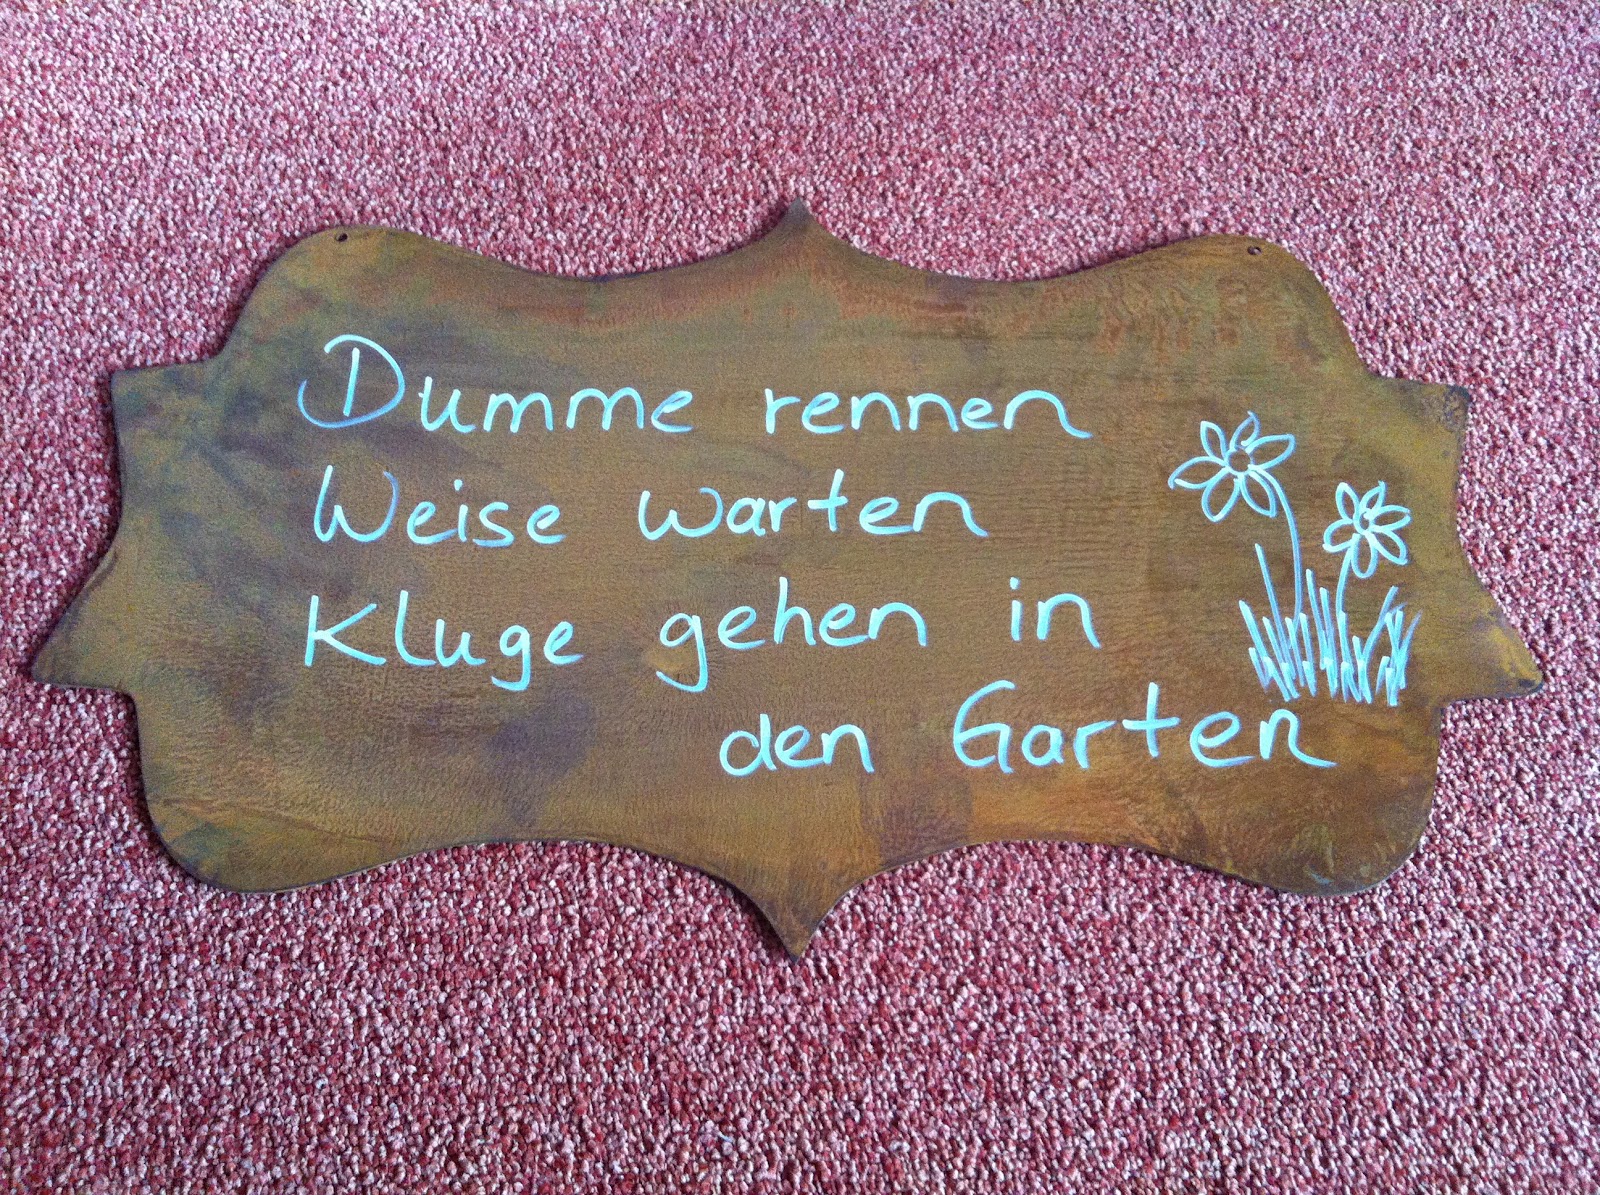 Dumme rennen
Weise warten
Kluge gehen in
den Garten